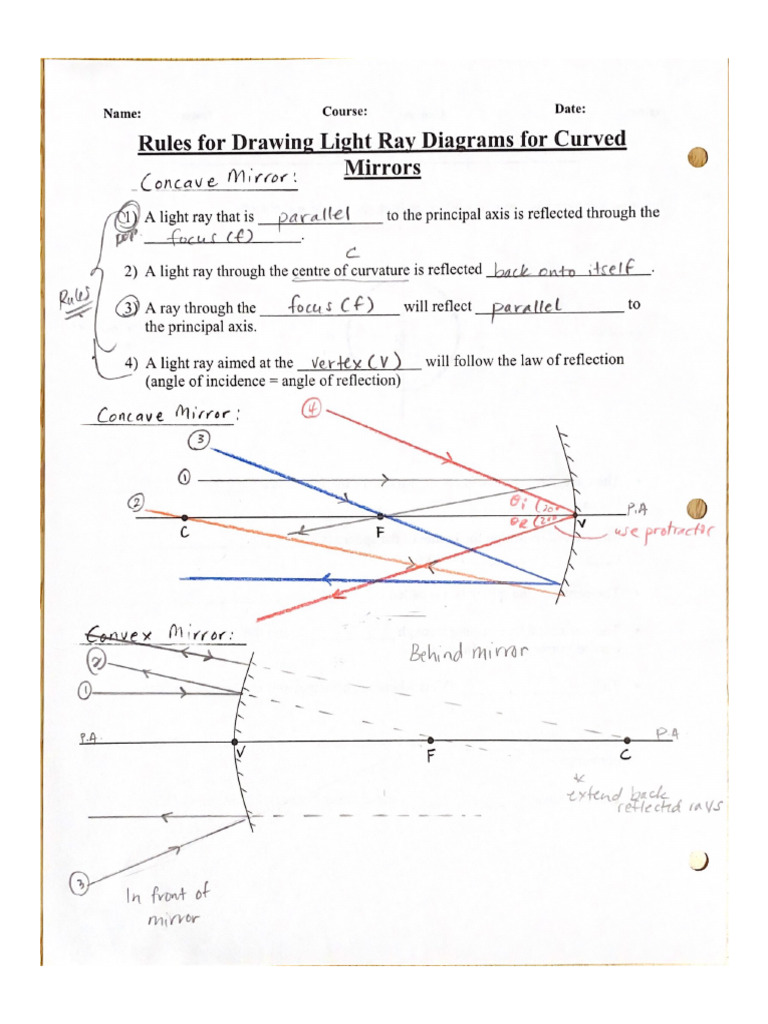 Name: Course: Date:
Rules for Drawing Light Ray Diagrams for Curved
Mirrors
Concave Mirror:
1) A light ray that is parallel to the principal axis is reflected through the
focus (f).
C
2) A light ray through the centre of curvature is reflected back onto itself.
Rules
3) A ray through the focus (f) will reflect parallel to
the principal axis.
4) A light ray aimed at the vertex (V) will follow the law of reflection
(angle of incidence = angle of reflection)
Concave Mirror:
4
3
1
2
θi 20°
P.A
C F V
θR 20°
use protractor
Convex Mirror:
Behind mirror
2
1
P.A. P.A
V F C
*
extend back
reflected rays
3
In front of
mirror